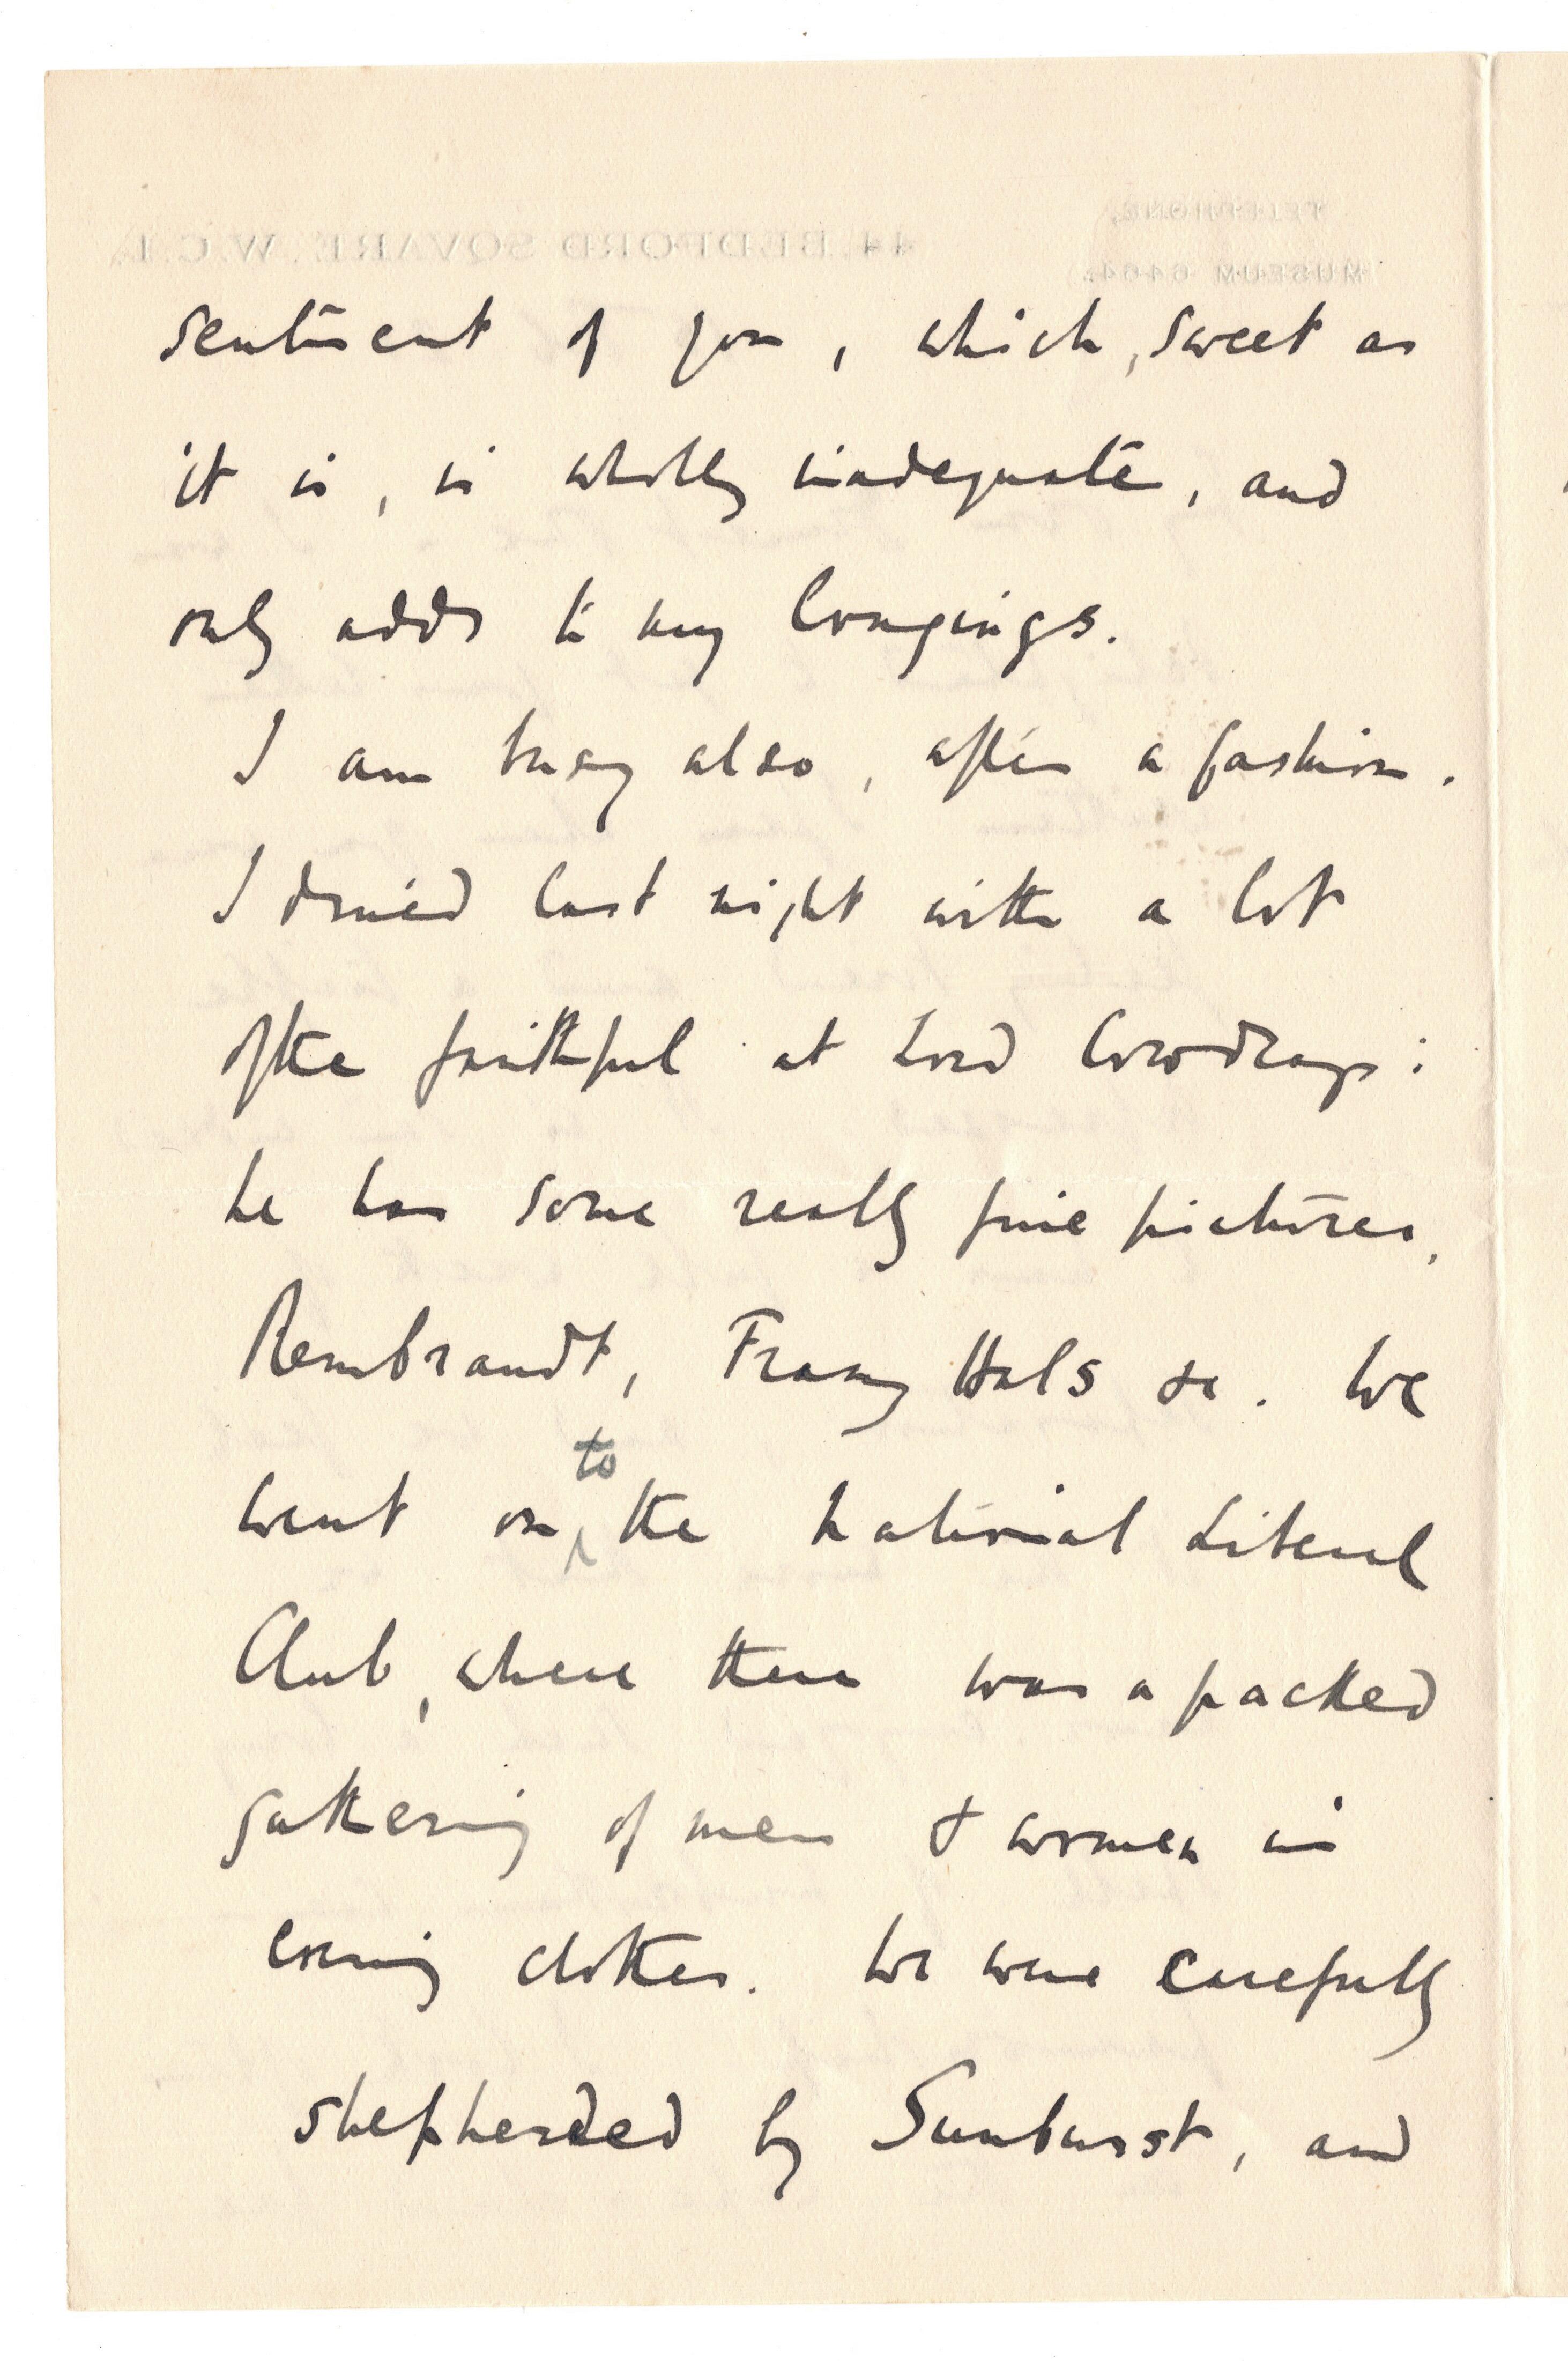 44, BEDFORD SQVARE, W.C.1.
TELEPHONE,
MUSEUM 6464.
sentiment of you, which, sweet as
it is, is wholly inadequate, and
only adds to my longings.
I am busy also, after a fashion.
I dined last night with a lot
of the faithful at Lord Cowdrays:
he has some really fine pictures,
Rembrandt, Franz Hals &c. We
went on to the National Liberal
Club, where there was a packed
gathering of men & women in
evening clothes. We were carefully
shepherded by Sunburst, and